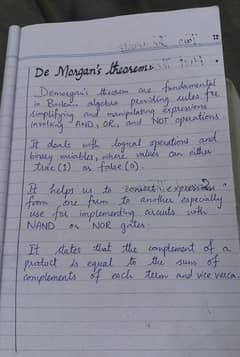 De Morgan's theorem:
Demorgan's theorem are fundamental
in Boolean algebra providing rules for
simplifying and manipulating expressions
involving AND, OR, and NOT operations
It deals with logical operations and
binary variables, where values can either
true (1) or false (0).
It helps us to convert expressions
from one form to another especially
use for implementing circuits with
NAND or NOR gates.
It states that the complement of a
product is equal to the sum of
complements of each term and vice verca.